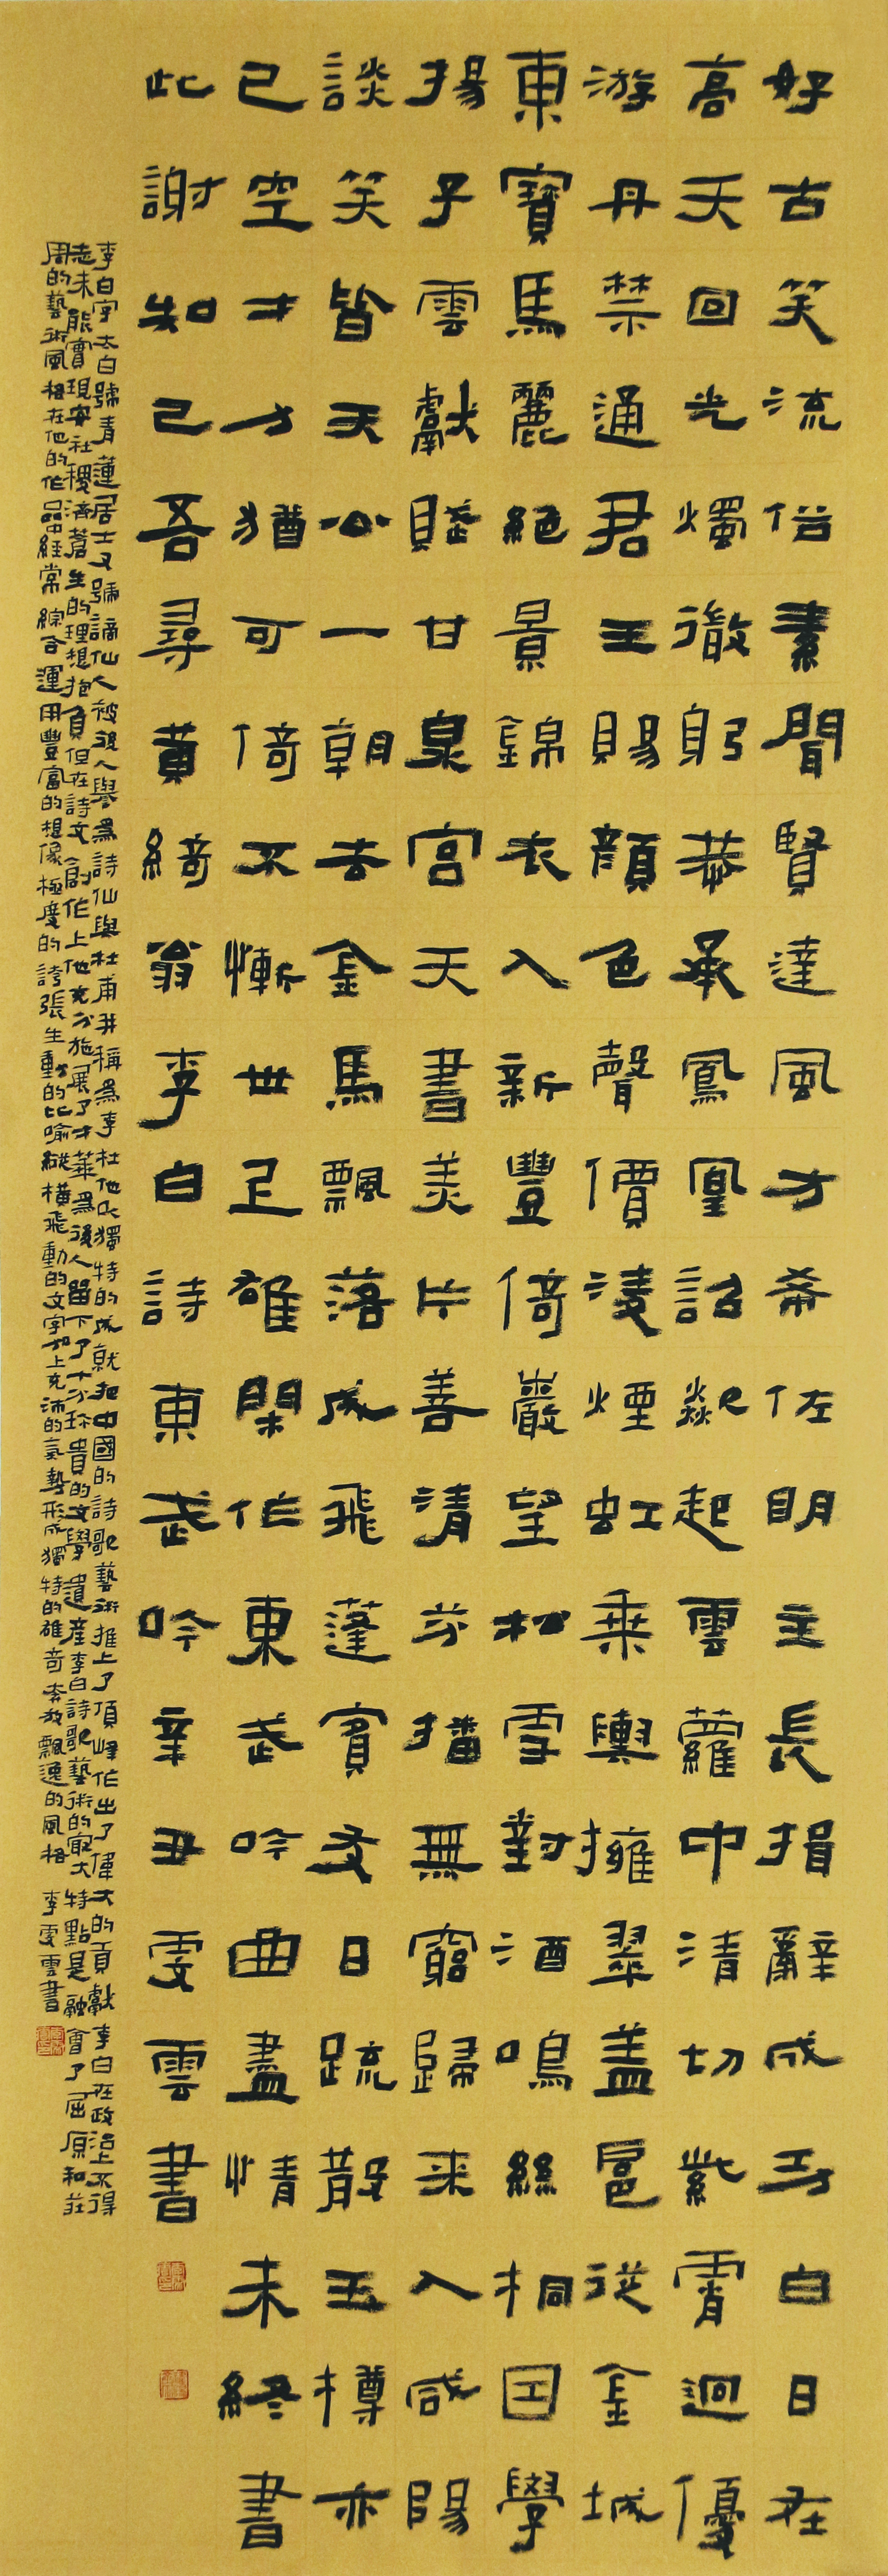 好古笑流俗素聞賢達風方希佐明主長揖辭成功白日在
高天回光燭微躬恭承鳳凰詔歘起雲蘿中清切紫霄迥優
游丹禁通君王賜顏色聲價凌煙虹乘輿擁翠蓋扈從金城
東寶馬麗絕景錦衣入新豐倚巖望松雪對酒鳴絲桐因學
揚子雲獻賦甘泉宮天書美片善清芬播無窮歸來入咸陽
談笑皆王公一朝去金馬飄落成飛蓬賓友日疏散玉樽亦
已空才力猶可倚不慚世上雄閑作東武吟曲盡情未終書
此謝知己吾尋黃綺翁李白詩東武吟辛丑雯雲書
李白字太白號青蓮居士又號謫仙人被後人譽爲詩仙與杜甫并稱爲李杜他以獨特的成就把中國的詩歌藝術推上了頂峰作出了偉大的貢獻李白在政治上不得
志未能實現安社稷濟蒼生的理想抱負但在詩文創作上他充分施展了才華爲後人留下了十分珍貴的文學遺產李白詩歌藝術的寂大特點是融會了屈原和莊
周的藝術風格在他的作品中經常綜合運用豐富的想像極度的誇張生動的比喻縱橫飛動的文字加上充沛的氣勢形成獨特的雄奇奔放飄逸的風格 李雯雲書